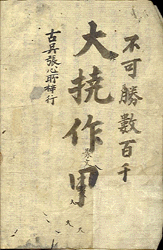 不可勝數百千
大撓作甲
古吳張心所梓行